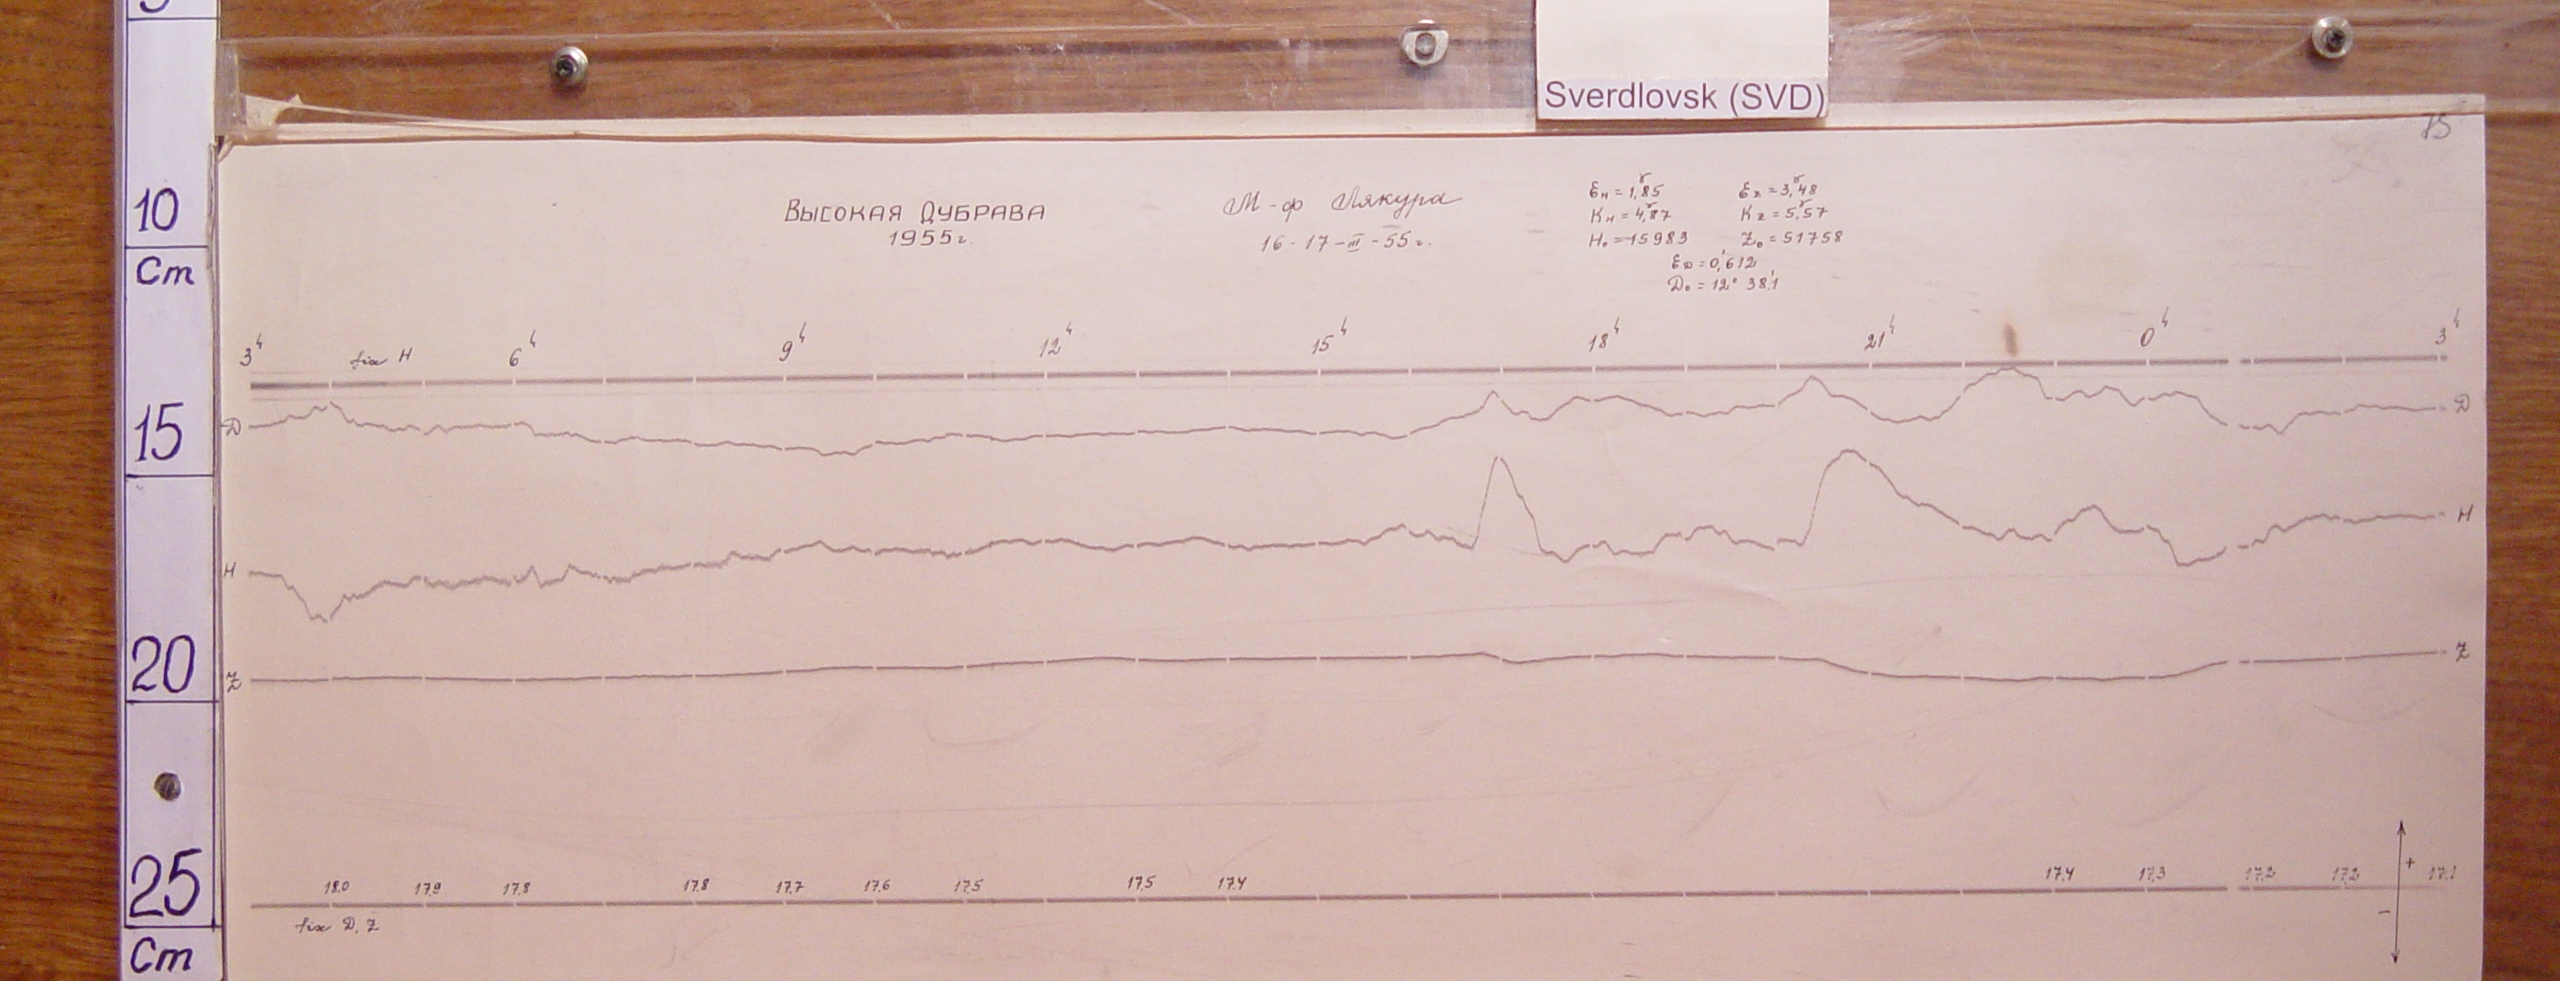 Sverdlovsk (SVD)
15
10
Cm
15
20
25
Cm
ВЫСОКАЯ ДУБРАВА
1955г.
М-ф Лякура
16-17-III-55г.
Ɛн=1,85 Ɛz=3,48
Kн=4,87 Kz=5,57
H₀=15983 Z₀=51758
ƐD=0,612
D₀=12° 38,1
3ч fix H 6ч 9ч 12ч 15ч 18ч 21ч 0ч 3ч
D D
H H
Z Z
18.0 17.9 17.8 17.8 17.7 17.6 17.5 17.5 17.4 17.4 17.3 17.2 17.2
+
−
fix D, Z